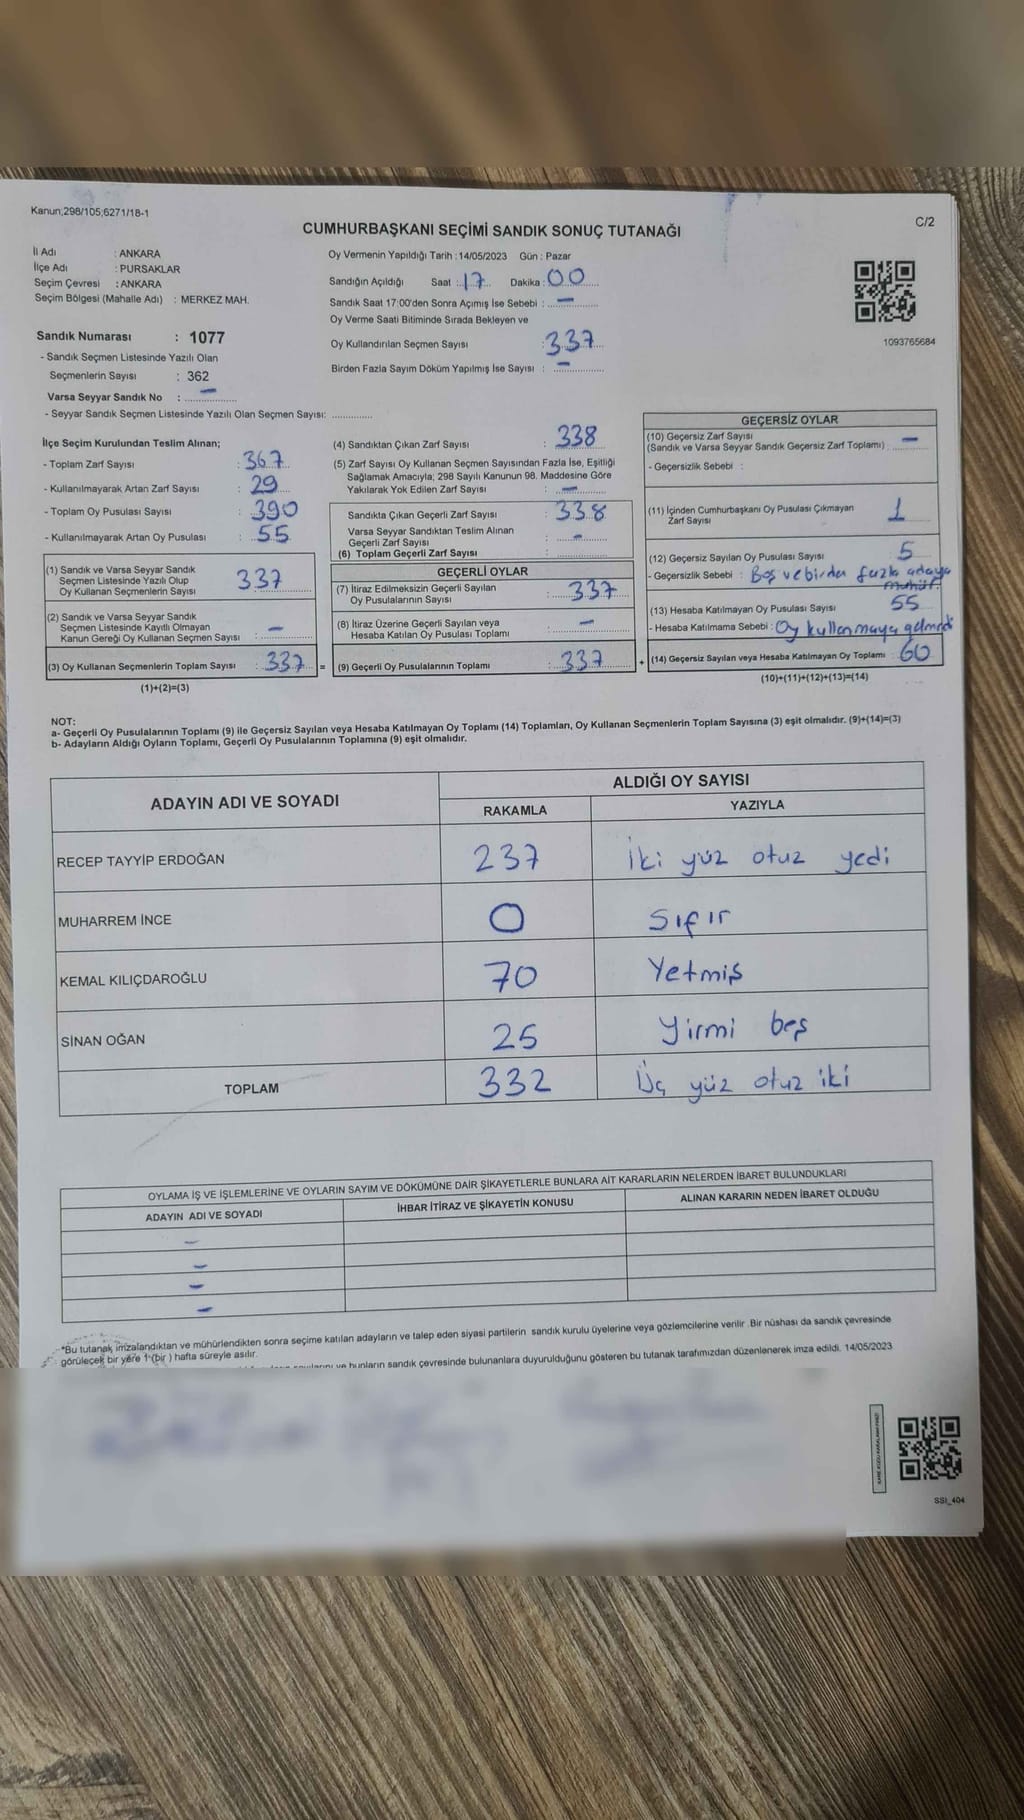 Kanun;298/105;6271/18-1
C/2
CUMHURBAŞKANI SEÇİMİ SANDIK SONUÇ TUTANAĞI
İl Adı : ANKARA
İlçe Adı : PURSAKLAR
Seçim Çevresi : ANKARA
Seçim Bölgesi (Mahalle Adı) : MERKEZ MAH.
Oy Vermenin Yapıldığı Tarih :14/05/2023 Gün : Pazar
Sandığın Açıldığı Saat : 17 Dakika : 00
Sandık Saat 17:00'den Sonra Açımış İse Sebebi : —
Oy Verme Saati Bitiminde Sırada Bekleyen ve
Oy Kullandırılan Seçmen Sayısı : 337
Birden Fazla Sayım Döküm Yapılmış İse Sayısı : —
1093765684
Sandık Numarası : 1077
- Sandık Seçmen Listesinde Yazılı Olan
Seçmenlerin Sayısı : 362
Varsa Seyyar Sandık No : —
- Seyyar Sandık Seçmen Listesinde Yazılı Olan Seçmen Sayısı: ..............
İlçe Seçim Kurulundan Teslim Alınan;
- Toplam Zarf Sayısı : 367
- Kullanılmayarak Artan Zarf Sayısı : 29
- Toplam Oy Pusulası Sayısı : 390
- Kullanılmayarak Artan Oy Pusulası : 55
(1) Sandık ve Varsa Seyyar Sandık
Seçmen Listesinde Yazılı Olup
Oy Kullanan Seçmenlerin Sayısı : 337
(2) Sandık ve Varsa Seyyar Sandık
Seçmen Listesinde Kayıtlı Olmayan
Kanun Gereği Oy Kullanan Seçmen Sayısı : —
(3) Oy Kullanan Seçmenlerin Toplam Sayısı : 337 =
(1)+(2)=(3)
(4) Sandıktan Çıkan Zarf Sayısı : 338
(5) Zarf Sayısı Oy Kullanan Seçmen Sayısından Fazla İse, Eşitliği
Sağlamak Amacıyla; 298 Sayılı Kanunun 98. Maddesine Göre
Yakılarak Yok Edilen Zarf Sayısı : —
Sandıkta Çıkan Geçerli Zarf Sayısı : 338
Varsa Seyyar Sandıktan Teslim Alınan
Geçerli Zarf Sayısı : -
(6) Toplam Geçerli Zarf Sayısı :
GEÇERLİ OYLAR
(7) İtiraz Edilmeksizin Geçerli Sayılan
Oy Pusulalarının Sayısı : 337
(8) İtiraz Üzerine Geçerli Sayılan veya
Hesaba Katılan Oy Pusulası Toplamı : —
(9) Geçerli Oy Pusulalarının Toplamı : 337 +
GEÇERSİZ OYLAR
(10) Geçersiz Zarf Sayısı
(Sandık ve Varsa Seyyar Sandık Geçersiz Zarf Toplamı) : —
- Geçersizlik Sebebi :
(11) İçinden Cumhurbaşkanı Oy Pusulası Çıkmayan
Zarf Sayısı 1
(12) Geçersiz Sayılan Oy Pusulası Sayısı : 5
- Geçersizlik Sebebi : Boş ve birden fazla adaya
mühür.
(13) Hesaba Katılmayan Oy Pusulası Sayısı 55
- Hesaba Katılmama Sebebi : Oy kullanmaya gelmedi
(14) Geçersiz Sayılan veya Hesaba Katılmayan Oy Toplamı : 60
(10)+(11)+(12)+(13)=(14)
NOT:
a- Geçerli Oy Pusulalarının Toplamı (9) ile Geçersiz Sayılan veya Hesaba Katılmayan Oy Toplamı (14) Toplamları, Oy Kullanan Seçmenlerin Toplam Sayısına (3) eşit olmalıdır. (9)+(14)=(3)
b- Adayların Aldığı Oyların Toplamı, Geçerli Oy Pusulalarının Toplamına (9) eşit olmalıdır.
ADAYIN ADI VE SOYADI
ALDIĞI OY SAYISI
RAKAMLA YAZIYLA
RECEP TAYYİP ERDOĞAN 237 İki yüz otuz yedi
MUHARREM İNCE 0 Sıfır
KEMAL KILIÇDAROĞLU 70 Yetmiş
SİNAN OĞAN 25 Yirmi beş
TOPLAM 332 Üç yüz otuz iki
OYLAMA İŞ VE İŞLEMLERİNE VE OYLARIN SAYIM VE DÖKÜMÜNE DAİR ŞİKAYETLERLE BUNLARA AİT KARARLARIN NELERDEN İBARET BULUNDUKLARI
ADAYIN ADI VE SOYADI İHBAR İTİRAZ VE ŞİKAYETİN KONUSU ALINAN KARARIN NEDEN İBARET OLDUĞU
—
—
—
—
*Bu tutanak imzalandıktan ve mühürlendikten sonra seçime katılan adayların ve talep eden siyasi partilerin sandık kurulu üyelerine veya gözlemcilerine verilir .Bir nüshası da sandık çevresinde
görülecek bir yere 1 (bir ) hafta süreyle asılır.
ve bunların sandık çevresinde bulunanlara duyurulduğunu gösteren bu tutanak tarafımızdan düzenlenerek imza edildi. 14/05/2023
SSI_404